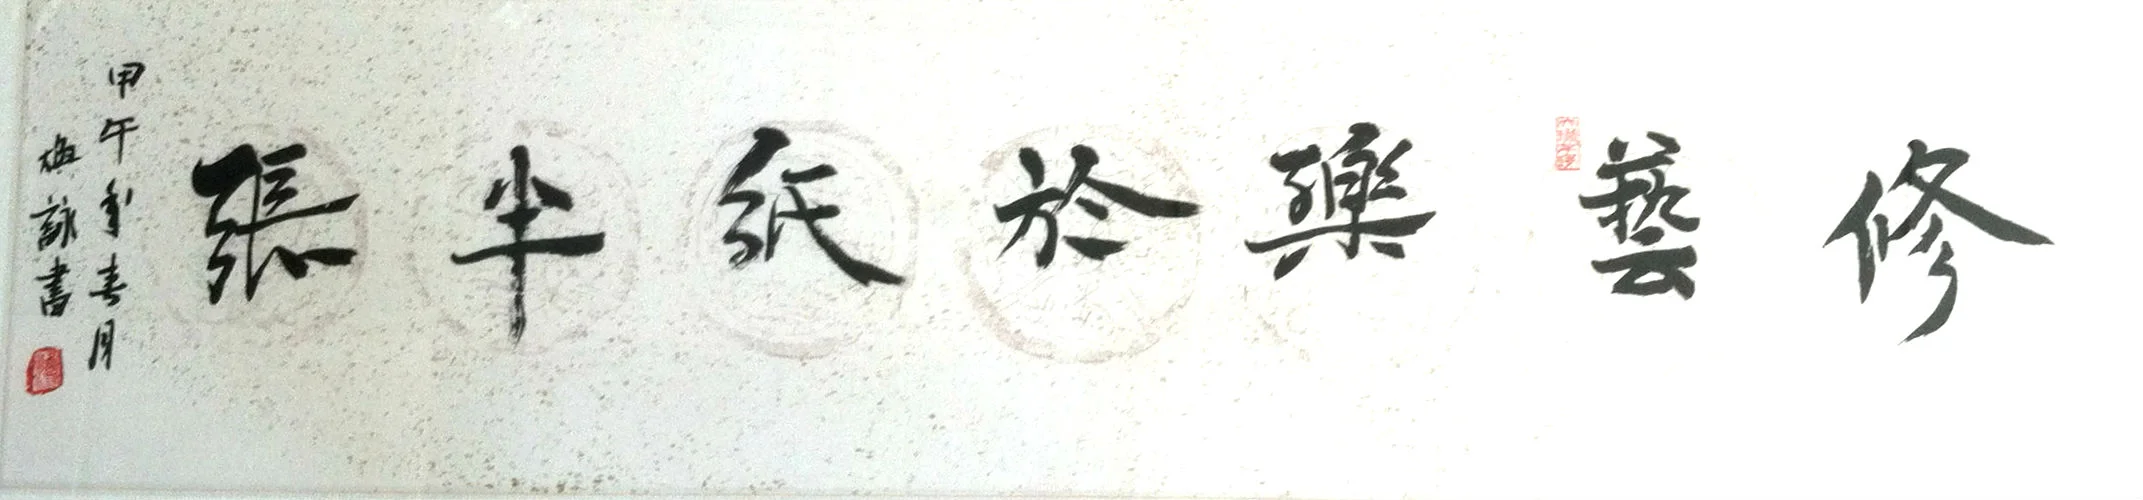 修藝樂於紙半張
甲午年春月
梅詠書